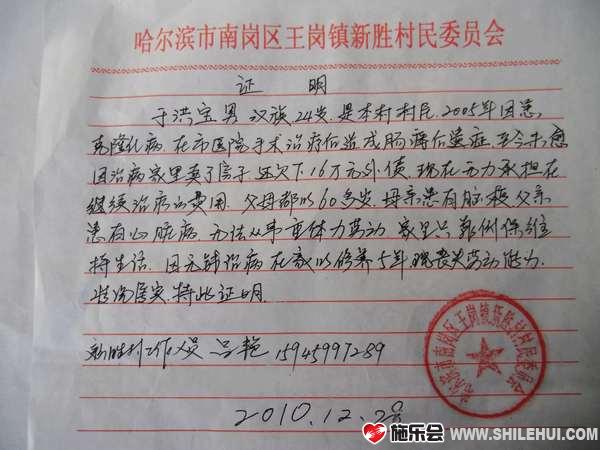 哈尔滨市南岗区王岗镇新胜村民委员会
证 明
于洪宝男 汉族 24岁. 是本村村民. 2005年因患.
克隆化病. 在市医院手术治疗后造成肠瘘后遗症. 至今未愈
因治病家里卖了房子 还欠下16万元外债. 现在无力承担在
继续治病的费用. 父母都以60多岁. 母亲患有脑梗 父亲
患有心脏病. 无法从事重体力劳动. 家里只靠低保维
持生活. 因无钱治病 在家以修养5年. 现丧失劳动能力.
情况属实. 特此证明.
新胜村工作人员 吕艳 15945997289
2010.12.28
哈尔滨市南岗区王岗镇新胜村民委员会
施乐会 WWW.SHILEHUI.COM